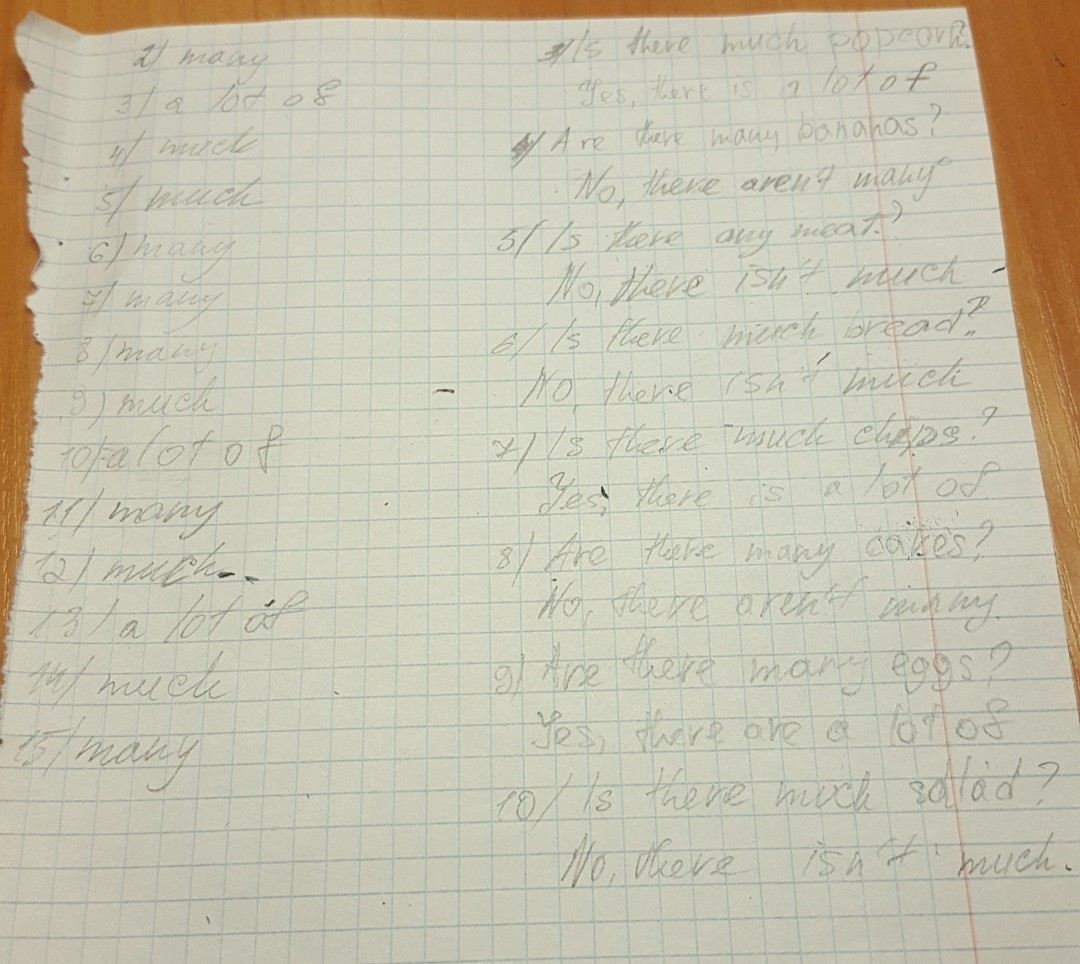 2) many
3) a lot of
4) much
5) much
6) many
7) many
8) many
9) much
10) a lot of
11) many
12) much
13) a lot of
14) much
15) many
3) Is there much popcorn?
Yes, there is a lot of
4) Are there many bananas?
No, there aren't many
5) Is there any meat?
No, there isn't much
6) Is there much bread?
No, there isn't much
7) Is there much chips?
Yes, there is a lot of
8) Are there many cakes?
No, there aren't many.
9) Are there many eggs?
Yes, there are a lot of
10) Is there much salad?
No, there isn't much.